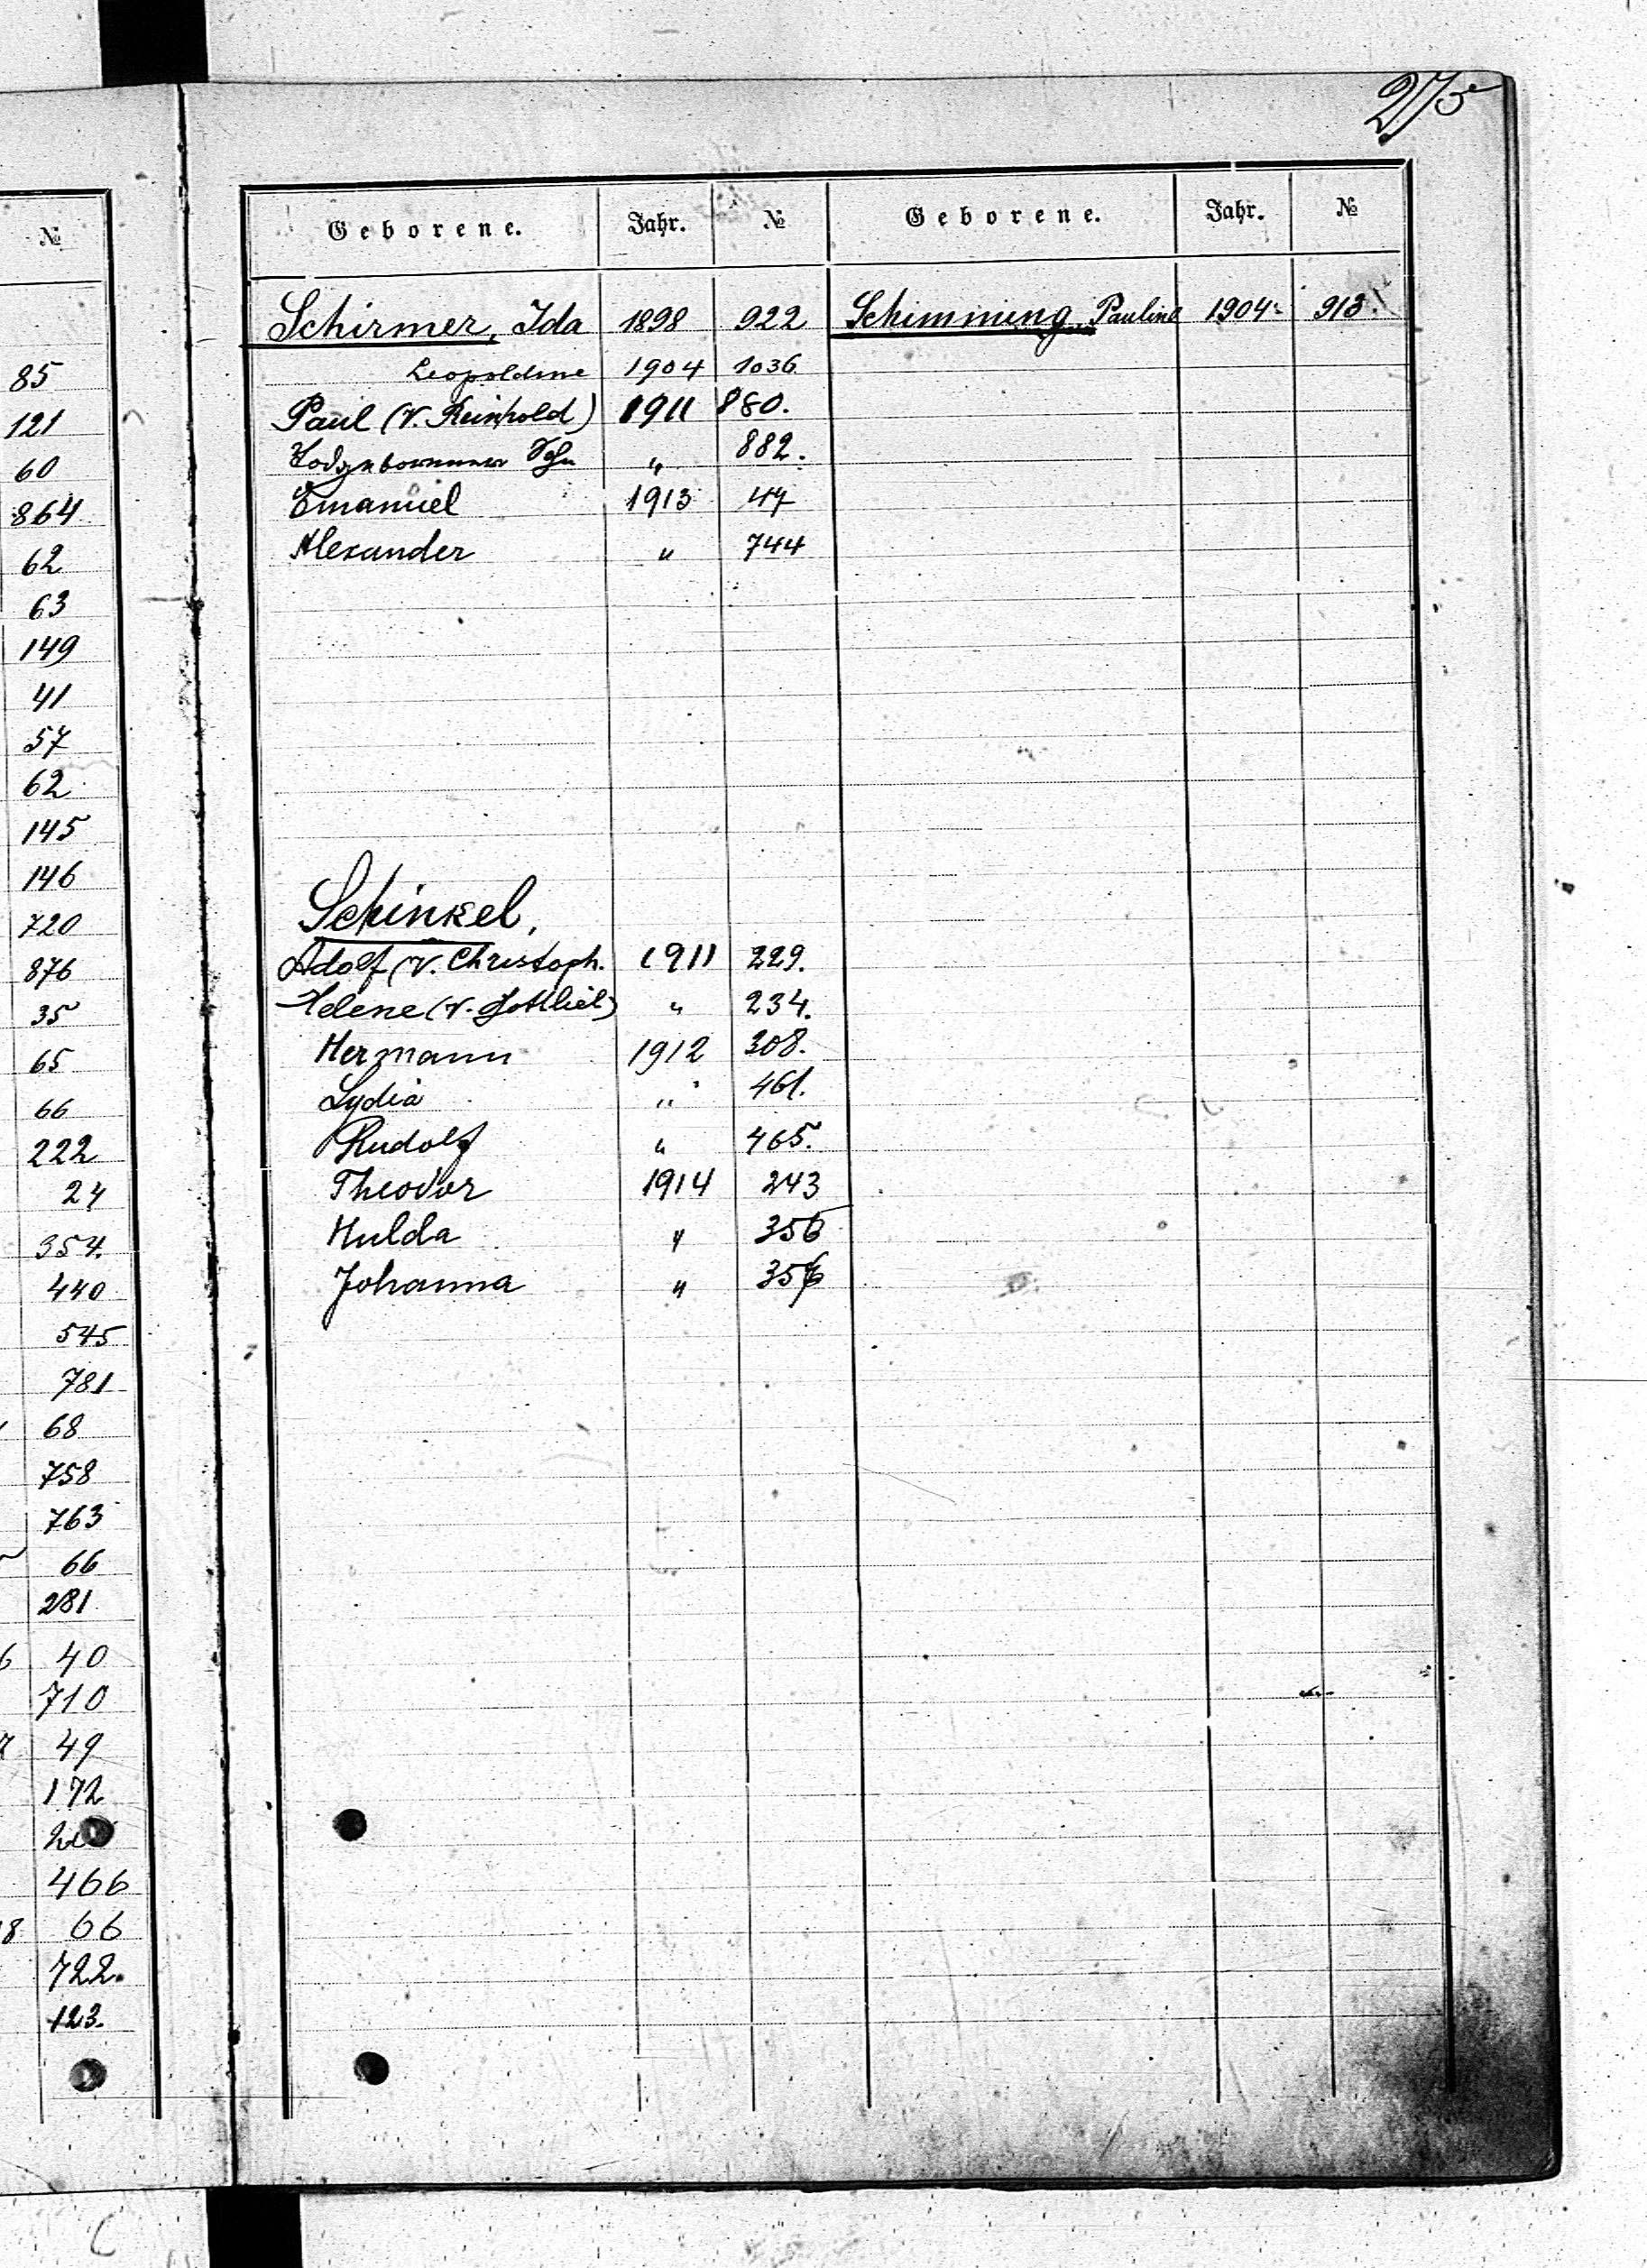 275
№
85
121
60
864
62
63
149
41
57
62
145
146
720
876
35
65
66
222
24
354.
440
545
781
68
758
763
66
281
40
710
49
172
466
8 66
722.
123.
Geborene. Jahr. № Geborene. Jahr. №
Schirmer, Ida 1898 922 Schimming Pauline 1904 913.
Leopoldine 1904 1036
Paul (V. Reinhold) 1911 880.
" 882.
Emanuel 1913 47
Alexander " 744
Schinkel,
Adolf (V. Christoph. 1911 229.
Helene (V. Gottlieb) " 234.
Hermann 1912 308.
Lydia " 461.
Rudolf " 465.
Theodor 1914 243
Hulda " 356
Johanna "